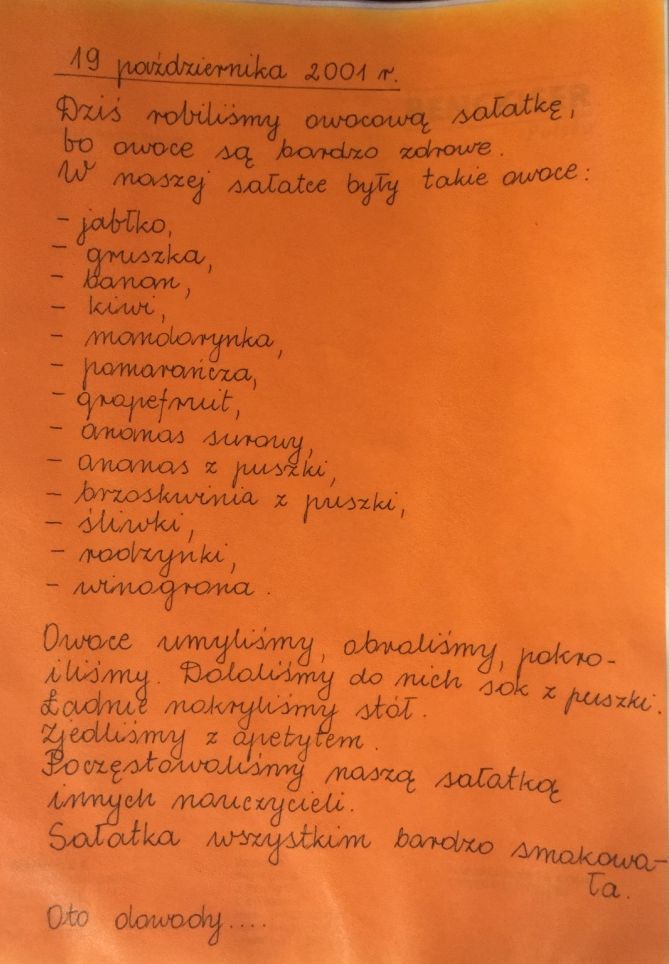 19 października 2001 r.
Dziś robiliśmy owocową sałatkę,
bo owoce są bardzo zdrowe.
W naszej sałatce były takie owoce:
- jabłko,
- gruszka,
- banan,
- kiwi,
- mandarynka,
- pomarańcza,
- grapefruit,
- ananas surowy,
- ananas z puszki,
- brzoskwinia z puszki,
- śliwki,
- rodzynki,
- winogrona.
Owoce umyliśmy, obraliśmy, pokro-
iliśmy. Dolaliśmy do nich sok z puszki.
Ładnie nakryliśmy stół.
Zjedliśmy z apetytem.
Poczęstowaliśmy naszą sałatką
innych nauczycieli.
Sałatka wszystkim bardzo smakowa-
ła.
Oto dowody....